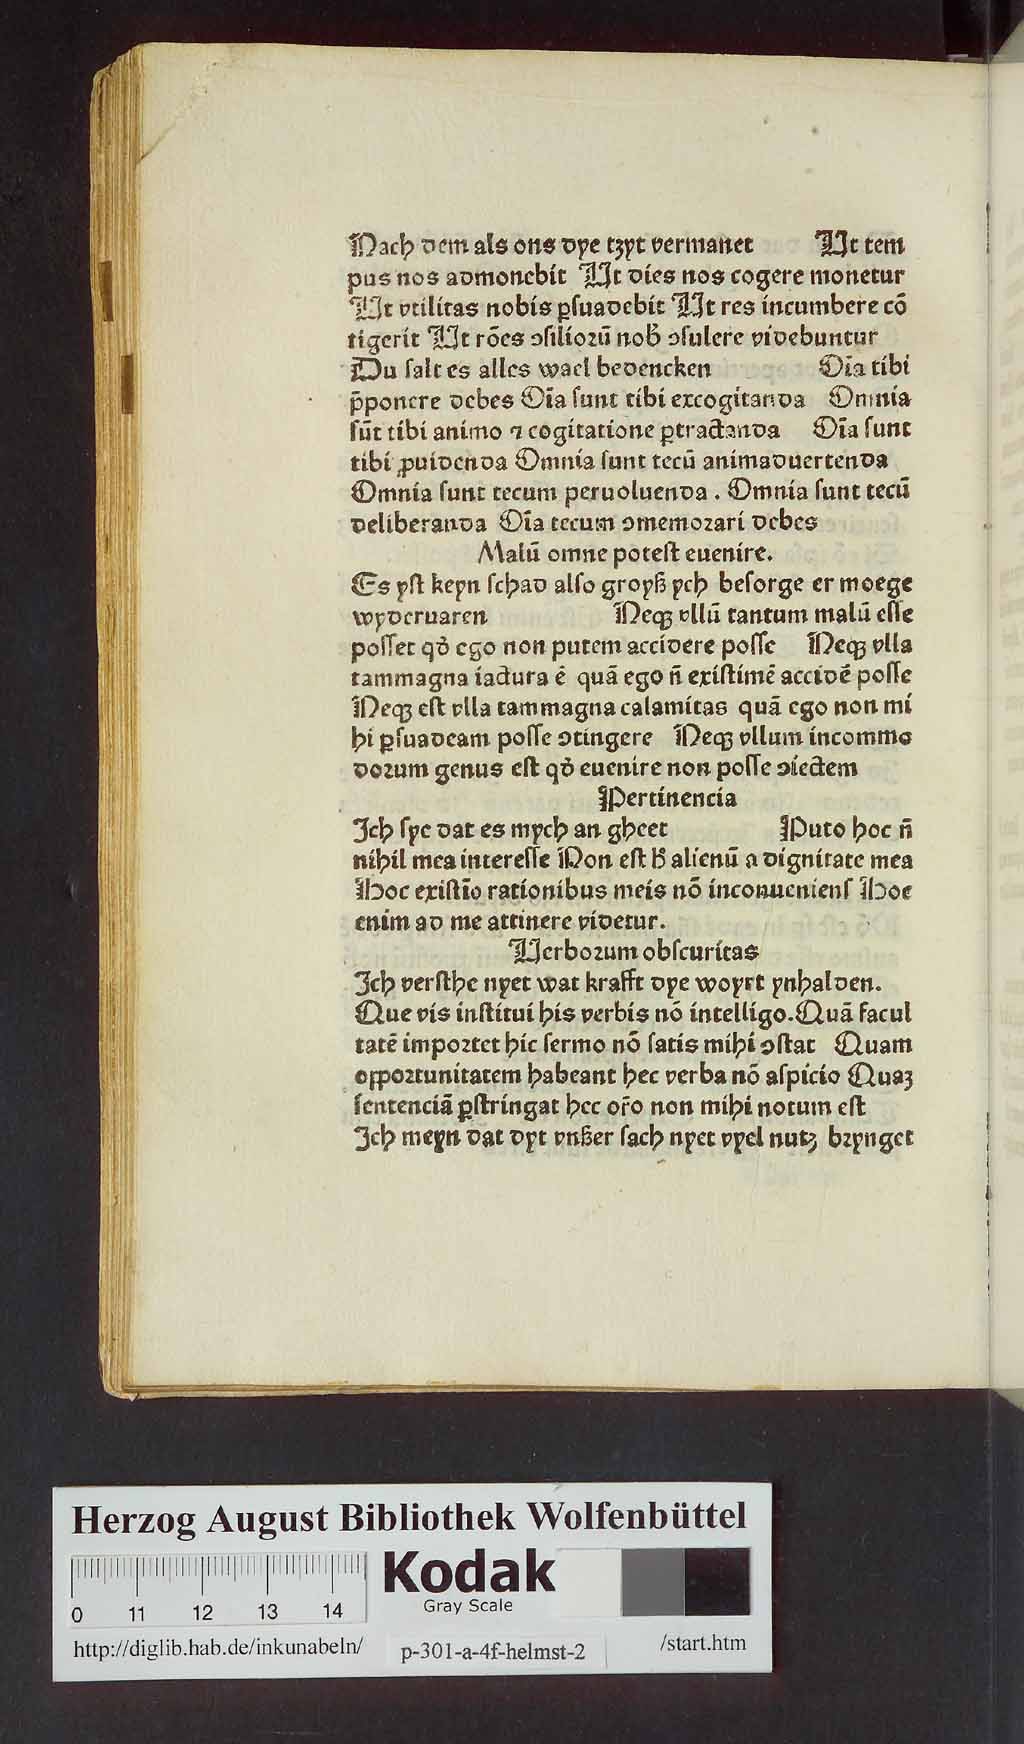 Nach dem als ons dye tzyt vermanet Ut tem
pus nos admonebit Ut dies nos cogere monetur
Ut vtilitas nobis ꝑsuadebit Ut res incumbere cō
tigerit Ut rōes ꝯsilioꝛū nob̾ ꝯsulere videbuntur
Du salt es alles wael bedencken Oīa tibi
p̄ponere debes Oīa sunt tibi excogitanda Omnia
sūt tibi animo ⁊ cogitatione ꝑtractanda Oīa sunt
tibi ꝓuidenda Omnia sunt tecū animaduertenda
Omnia sunt tecum peruoluenda . Omnia sunt tecū
deliberanda Oīa tecum ꝯmemoꝛari debes
Malū omne potest euenire.
Es yst keyn schad also groyß ych besorge er moege
wyderuaren Neqꝫ vllū tantum malū esse
posset qd̾ ego non putem accidere posse Neqꝫ vlla
tammagna iactura ē quā ego n̄ existimē accidē posse
Neqꝫ est vlla tammagna calamitas quā ego non mi
hi ꝑsuadeam posse ꝯtingere Neqꝫ vllum incommo
doꝛum genus est qd̾ euenire non posse ꝯiectem
Pertinencia
Ich sye dat es mych an gheet Puto hoc n̄
nihil mea interesse Non est h̾ alienū a dignitate mea
Hoc existīo rationibus meis nō inconueniens Hoc
enim ad me attinere videtur.
Verboꝛum obscuritas
Ich versthe nyet wat krafft dye woyrt ynhalden.
Que vis institui his verbis nō intelligo. Quā facul
tatē impoꝛtet hic sermo nō satis mihi ꝯstat Quam
oppoꝛtunitatem habeant hec verba nō aspicio Quaꝫ
sentenciā ꝑstringat hec or̄o non mihi notum est
Ich meyn dat dyt vnßer sach nyet vyel nutz bꝛynget
Herzog August Bibliothek Wolfenbüttel
Kodak
Gray Scale
0 11 12 13 14
http://diglib.hab.de/inkunabeln/ p-301-a-4f-helmst-2 /start.htm